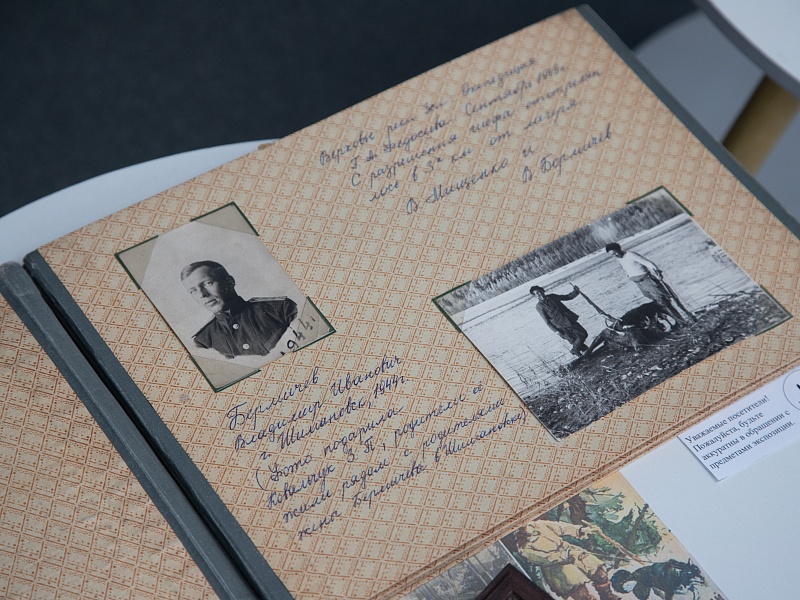 Верховье реки Зеи. Экспедиция
Г. А. Федосеева. Сентябрь
С разрешения шефа отстрелян
лось в 5 км от лагеря.
В. Мищенко и
В. Бермичев
1944г.
Бермичев
Владимир Иванович
г. Шимановск, 1944г.
(Фото подарила
Ковальчук З.П., родители её
жили рядом с родителями
жены Бермичева в Шимановске)
Уважаемые посетители!
Пожалуйста, будьте
аккуратны в обращении с
предметами экспозиции.